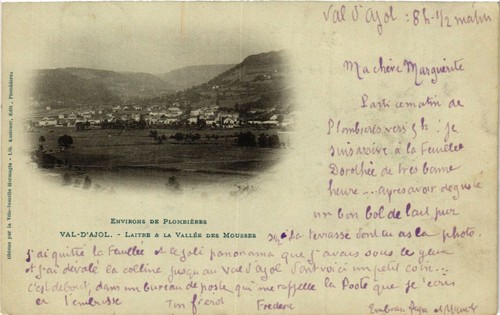 Val d'Ajol : 8h 1/2 matin
Ma chère Marguerite
Parti ce matin de
Plombières vers 5h : je
suis arrivé à la Feuillée
Dorothée de très bonne
heure ... après avoir dégusté
un bon bol de lait pur
sur la terrasse dont tu as la photo.
ENVIRONS DE PLOMBIÈRES
VAL-D'AJOL. - LAITRE & LA VALLÉE DES MOUSSES
j'ai quitté la Feuillée et le joli panorama que j'avais sous les yeux
et j'ai dévalé la colline jusqu'au val d'Ajol dont voici un petit coin...
c'est debout, dans un bureau de poste qui me rappelle la Poste que je t'écris
et t'embrasse Ton frère Frédéric
Embrasse Papa et